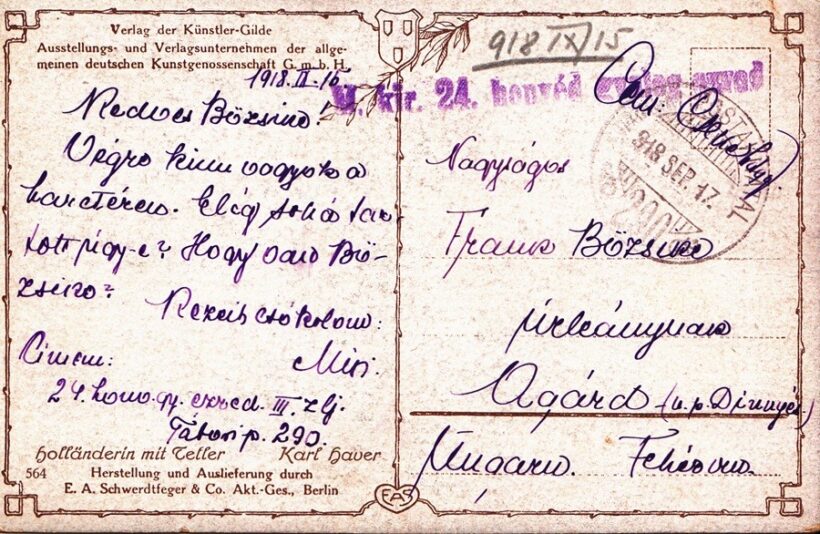 Verlag der Künstler-Gilde
Ausstellungs- und Verlagsunternehmen der allge-
meinen deutschen Kunstgenossenschaft G.m.b.H.
1918. IX. 15
Kedves Bözsike!
Végre kinn vagyok a
harctéren. Elég soká tar-
tott úgy-e? Hogy van Bö-
zsike?
Kezeit csókolom:
Miri.
Címem:
24. honv. gy. ezred. III. zlj.
Tábori p. 290.
Holländerin mit Teller Karl Haver
564 Herstellung und Auslieferung durch
E. A. Schwerdtfeger & Co. Akt.-Ges., Berlin
EAS
918 IX/15
M. kir. 24. honvéd gyalog ezred
918 SEP. 17.
Nagyságos
Frank Bözsike
úrleánynak
Agárd (u. p. Dinnyés)
Ungarn. Fehérvm.